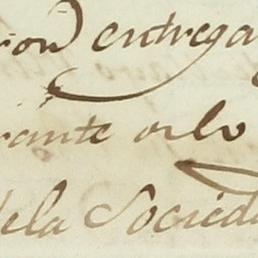 ion entrega
rante o lo
de la Socied